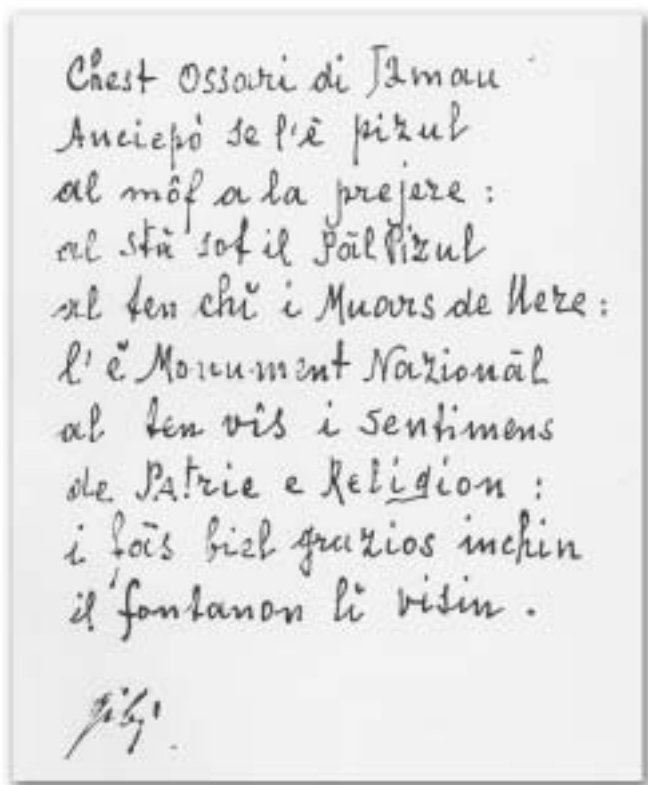 Chest Ossari di Tamau
Anciepò se l'è pizul
al môf a la prejere :
al stà sot il Pāl Pizul
al ten chì i Muars de Uere :
l'è Monument Nazionāl
al ten vîs i sentimens
de Patrie e Religion :
i fās biel grazios inchin
il fontanon lì visin .